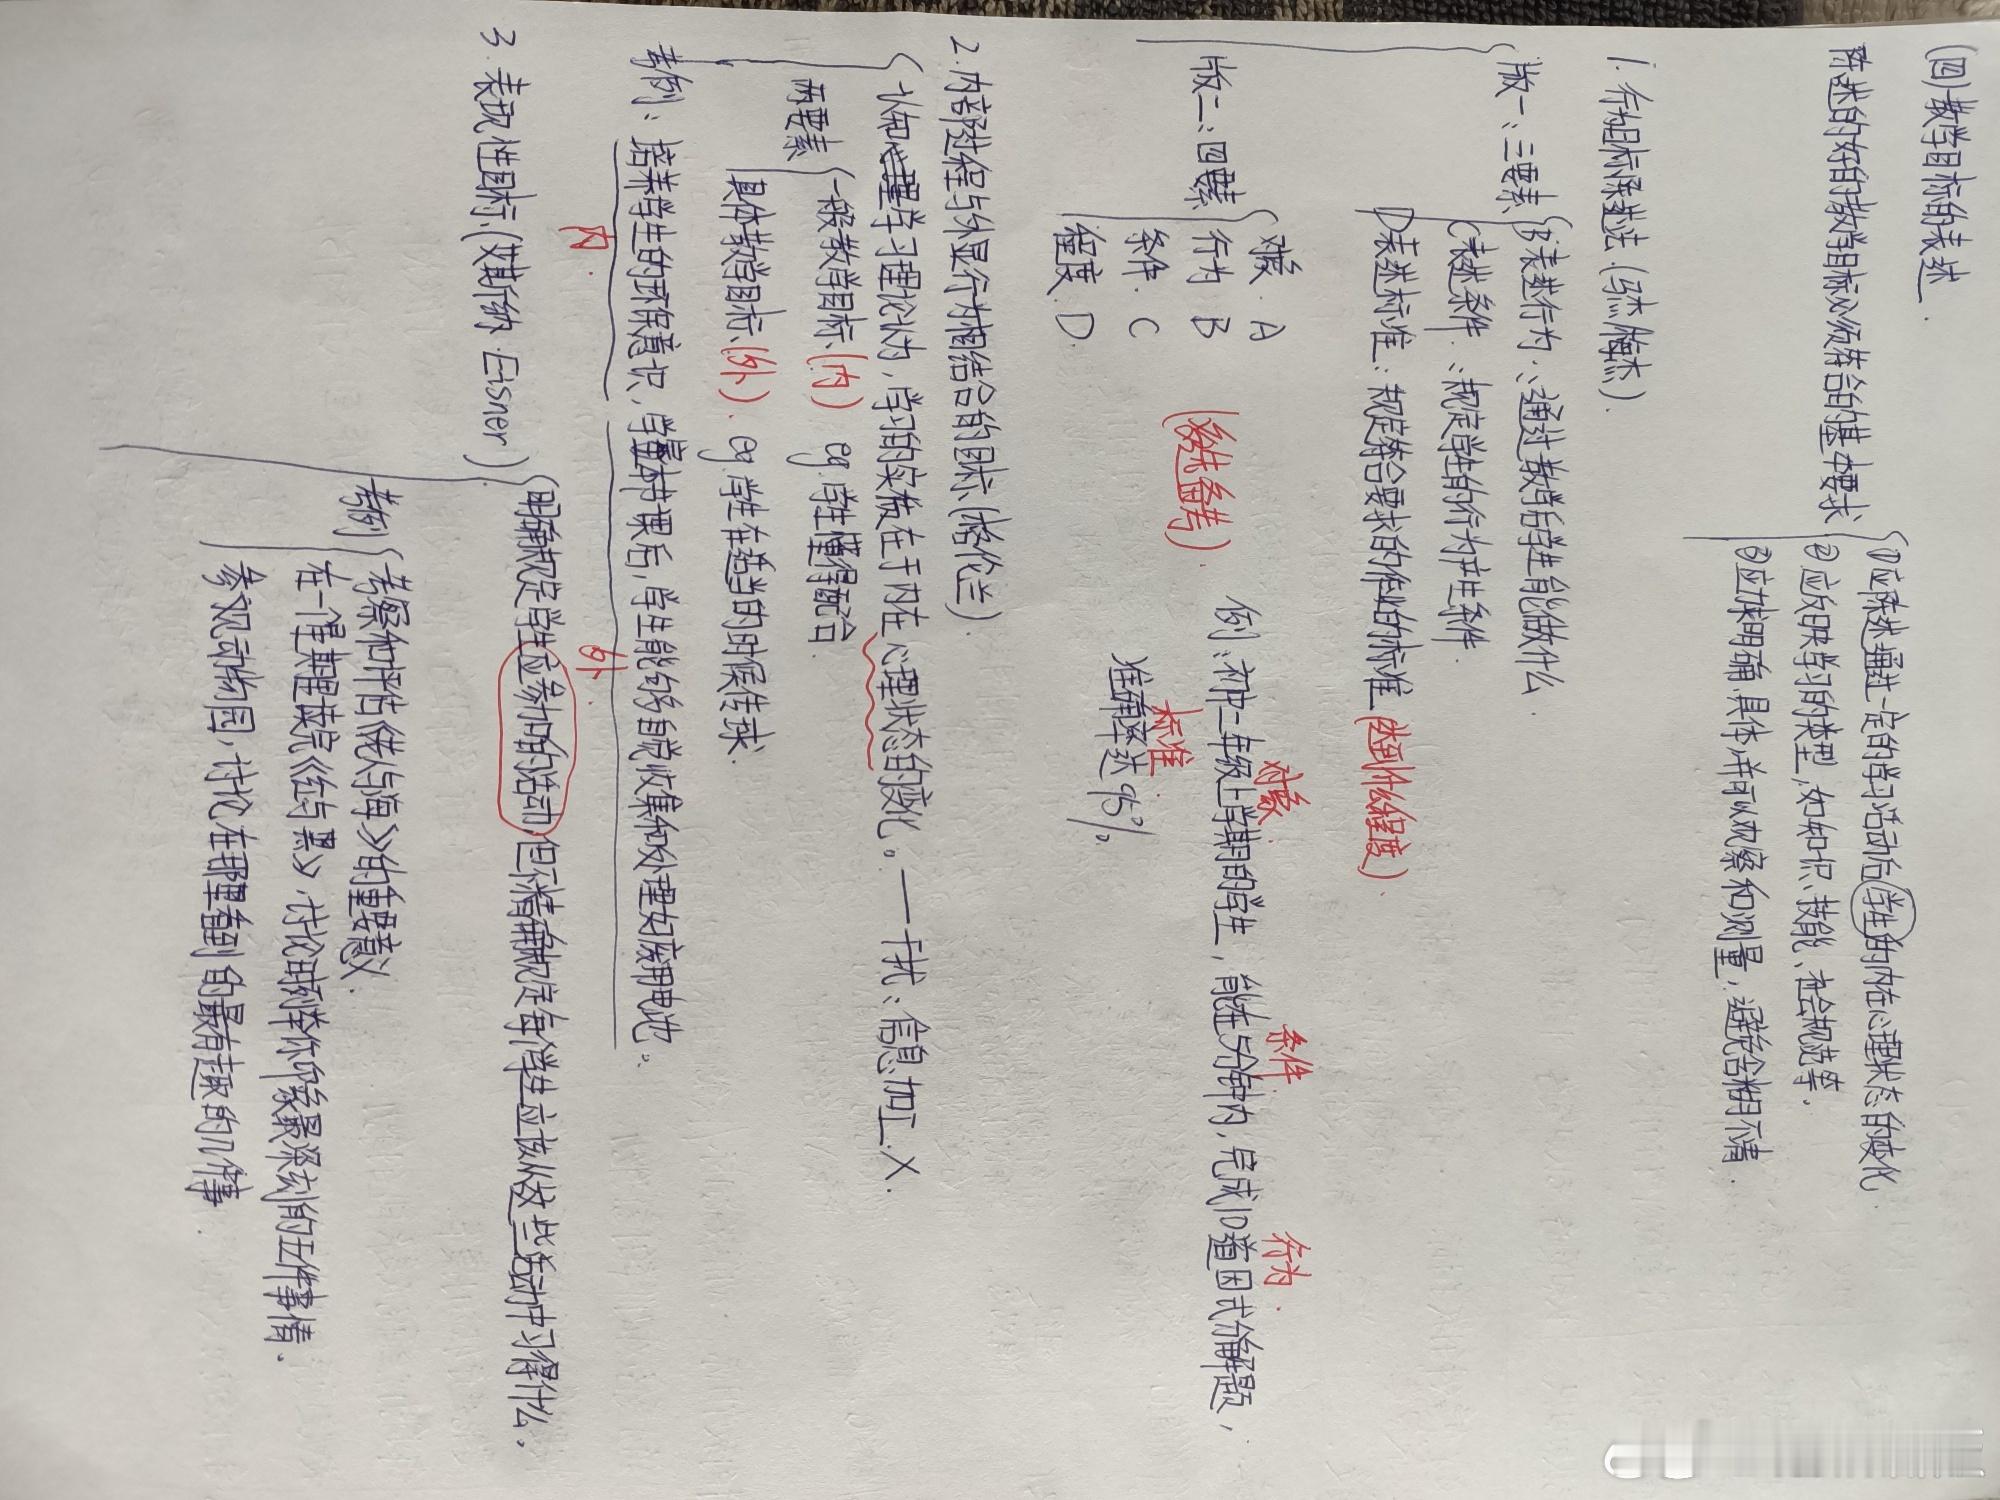 (四)教学目标的表述.
陈述的好的教学目标必须符合的基本要求
①应陈述通过一定的学习活动后学生的内在心理状态的变化
②应反映学习的类型,如知识、技能、社会规范等.
③应力求明确、具体,并可以观察和测量,避免含糊不清.
1.行为目标陈述法.(马杰/梅杰).
版一:三要素
B表述行为:通过教学后学生能做什么.
C表述条件:规定学生的行为产生条件.
D表述标准:规定符合要求的作业的标准(达到什么程度).
版二:四要素
对象.A
行为 B
条件.C
程度.D
例:初中二年级上学期的学生,能在5分钟内,完成10道因式分解题,
准确率达95%.
对象
条件
行为.
标准
2.内部过程与外显行为相结合的目标(格伦兰).
认知心理学习理论认为,学习的实质在于内在心理状态的变化。——干扰:信息加工.X.
两要素
一般教学目标(内) eg.学生懂得配合.
具体教学目标(外). eg.学生在适当的时候传球.
考例:培养学生的环保意识,学完本节课后,学生能够自己收集和处理好废旧电池。
内.
外.
3.表现性目标(艾斯纳.Eisner).
明确规定学生应参加的活动,但不精确规定每个学生应该从这些活动中习得什么。
考例
考察和评估《老人与海》的重要意义.
在一个星期里读完《红与黑》,讨论时列举你印象最深刻的五件事情.
参观动物园,讨论在那里看到的最有趣的几件事.